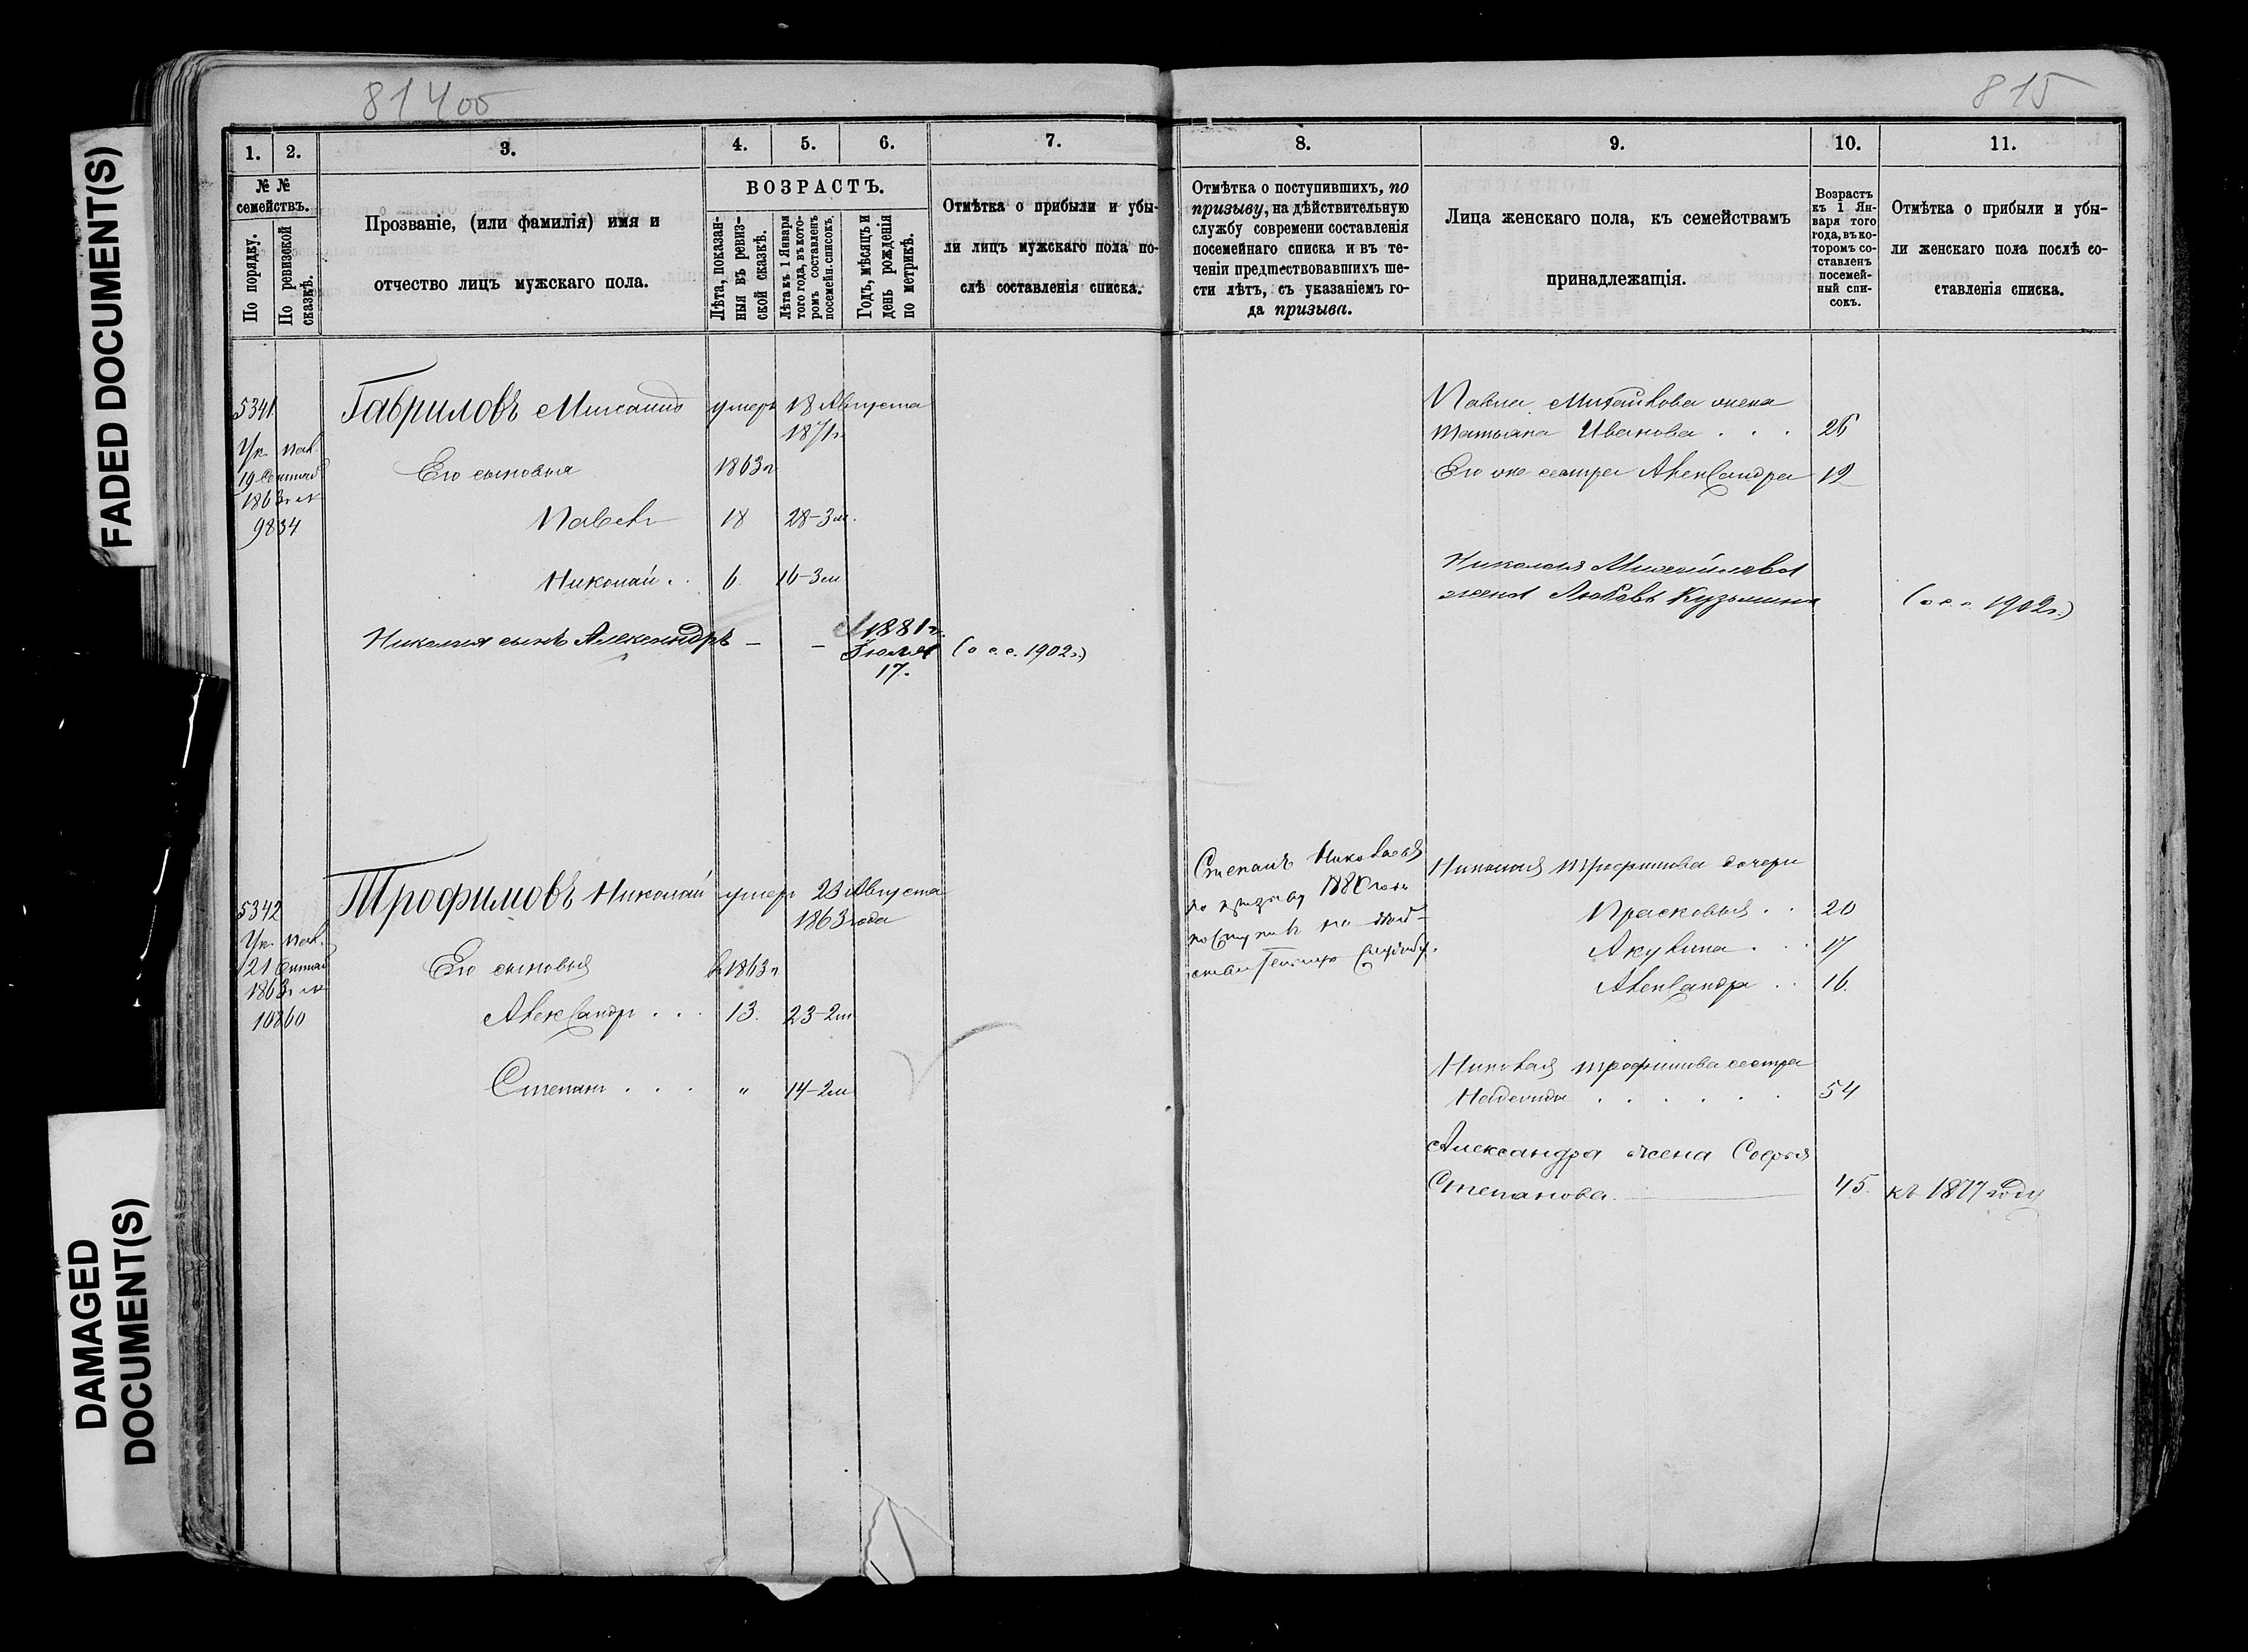 FADED DOCUMENT(S)
DAMAGED
DOCUMENT(S)
814 об
1. 2. 3. 4. 5. 6. 7.
№ №
семействъ.
По порядку.
По ревизской
сказкѣ.
Прозваніе, (или фамилія) имя и
отчество лицъ мужскаго пола.
ВОЗРАСТЪ.
Лѣта, показан-
ныя въ ревиз-
ской сказкѣ.
Лѣта къ 1 Января
того года, въ кото-
ромъ составленъ
посемейн. списокъ.
Годъ, мѣсяцъ и
день рожденія
по метрикѣ.
Отмѣтка о прибыли и убы-
ли лицъ мужскаго пола по-
слѣ составленія списка.
5341 Гавриловъ Михаилъ умеръ 18 Августа
1871г.
Ук. Пал.
19
1863г №
9834
Его сыновья 1863г
Павелъ 18 28-3м.
Николай . . 6 16-3м
Николая сынъ Александръ — — 1881г.
Іюля
17.
(о с. с. 1902г.)
5342 Трофимовъ Николай умеръ 23 Августа
1863 года
Ук. Пал.
21
1863г №
10860
Его сыновья 1863г
Александръ . . . 13. 23-2м
Степанъ . . . " 14-2м
815
8. 9. 10. 11.
Отмѣтка о поступившихъ, по
призыву, на дѣйствительную
службу современи составленія
посемейнаго списка и въ те-
ченіи предшествовавшихъ ше-
сти лѣтъ, съ указаніемъ го-
да призыва.
Лица женскаго пола, къ семействамъ
принадлежащія.
Возрастъ
къ 1 Ян-
варя того
года, въ ко-
торомъ со-
ставленъ
посемей-
ный спи-
сокъ.
Отмѣтка о прибыли и убы-
ли женскаго пола послѣ со-
ставленія списка.
Павла Михайлова жена
Татьяна Иванова . . . 26
Его же сестра Александра 12
Николая Михайлова
жена Любовь Кузьмина (о с. с. 1902г.)
Степанъ Николаевъ
по призыву 1880 года
поступилъ на дѣй-
ствительную службу.
Николая Трофимова дочери
Прасковья . . 20
Акулина . . . 17
Александра . . 16.
Николая Трофимова сестра
Надежда . . . . . . 54
Александра жена Софья
Степанова. 45. къ 1877 году